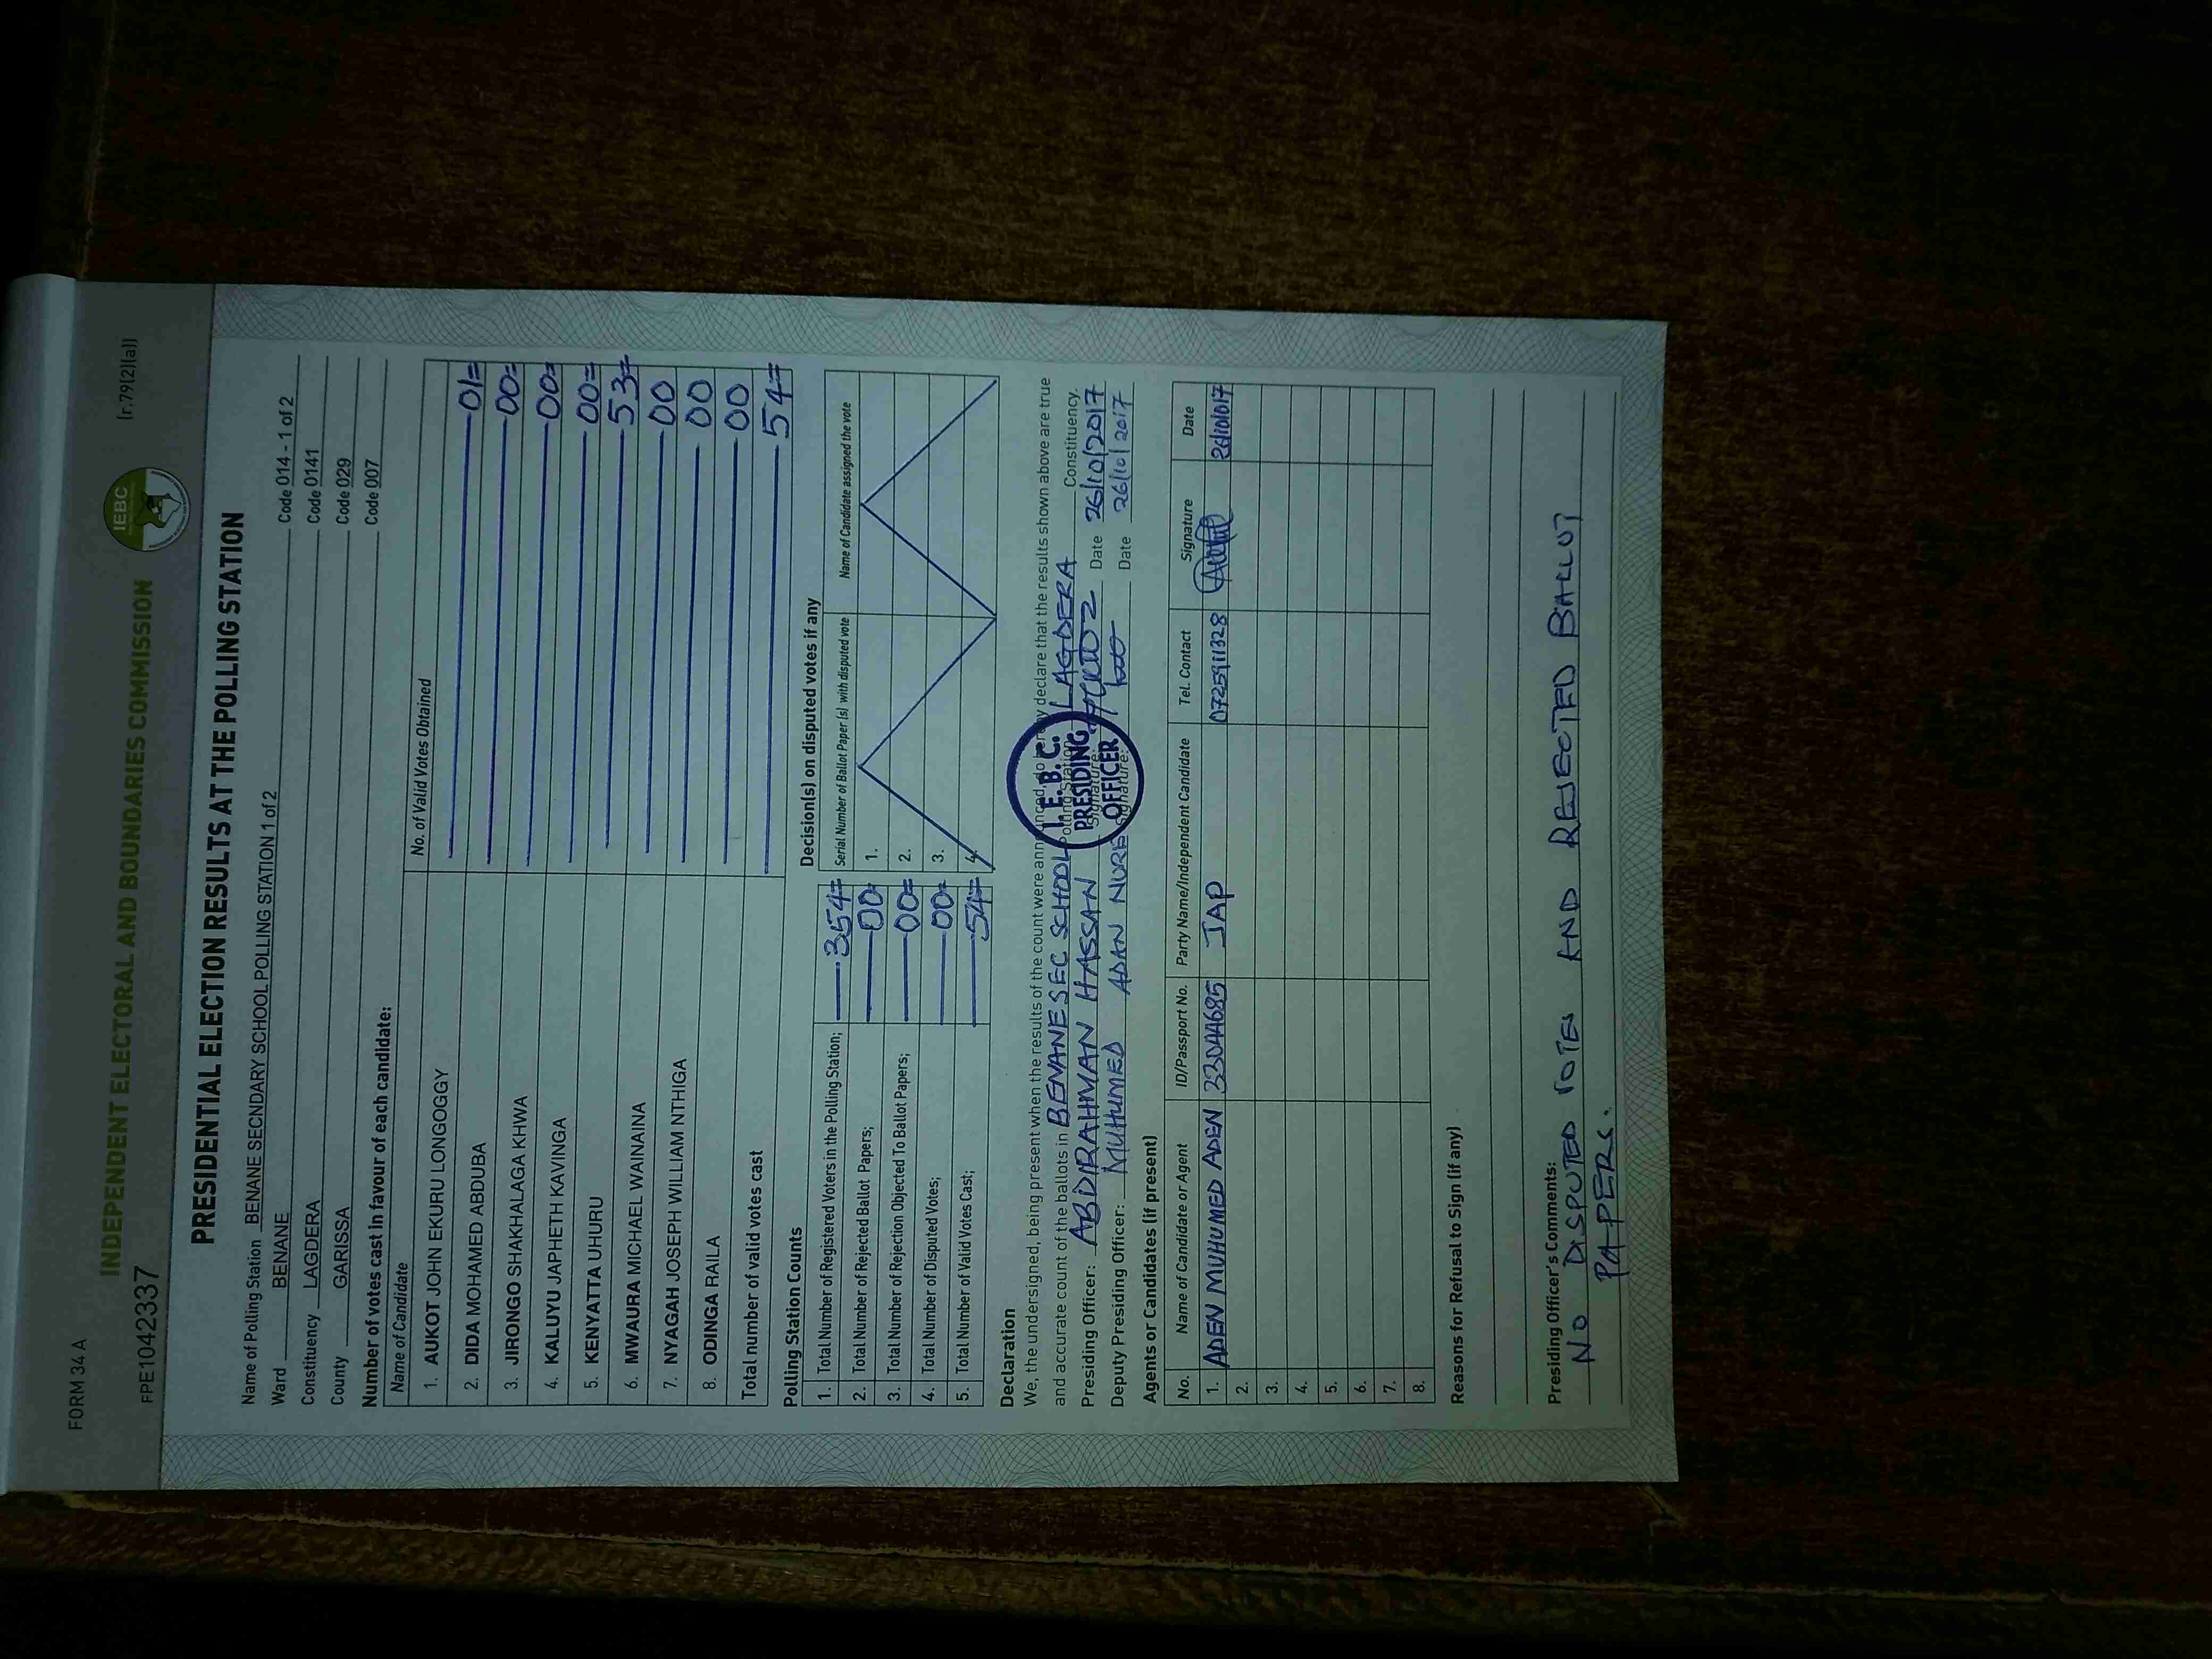 FORM 34 A
INDEPENDENT ELECTORAL AND BOUNDARIES COMMISSION
IEBC
(r.79(2)(a))
FPE1042337
PRESIDENTIAL ELECTION RESULTS AT THE POLLING STATION
Name of Polling Station BENANE SECNDARY SCHOOL POLLING STATION 1 of 2 Code 014 - 1 of 2
Ward BENANE Code 0141
Constituency LAGDERA Code 029
County GARISSA Code 007
Number of votes cast in favour of each candidate:
Name of Candidate No. of Valid Votes Obtained
1. AUKOT JOHN EKURU LONGOGGY 01=
2. DIDA MOHAMED ABDUBA 00=
3. JIRONGO SHAKHALAGA KHWA 00=
4. KALUYU JAPHETH KAVINGA 00=
5. KENYATTA UHURU 53=
6. MWAURA MICHAEL WAINAINA 00
7. NYAGAH JOSEPH WILLIAM NTHIGA 00
8. ODINGA RAILA 00
Total number of valid votes cast 54=
Polling Station Counts
1. Total Number of Registered Voters in the Polling Station; 354=
2. Total Number of Rejected Ballot Papers; 00=
3. Total Number of Rejection Objected To Ballot Papers; 00=
4. Total Number of Disputed Votes; 00=
5. Total Number of Valid Votes Cast; 54=
Decision(s) on disputed votes if any
Serial Number of Ballot Paper (s) with disputed vote Name of Candidate assigned the vote
1.
2.
3.
4.
Declaration
We, the undersigned, being present when the results of the count were announced, do hereby declare that the results shown above are true
and accurate count of the ballots in BENANE SEC SCHOOL Polling Station, LAGDERA Constituency.
Presiding Officer: ABDIRAHMAN HASSAN Signature: Date 26/10/2017
Deputy Presiding Officer: MUHUMED ADAN NURE Signature: Date 26/10/2017
I. E. B. C.
PRESIDING
OFFICER
Agents or Candidates (if present)
No. Name of Candidate or Agent ID/Passport No. Party Name/Independent Candidate Tel. Contact Signature Date
1. ADEN MUHUMED ADEN 33044685 JAP 0725911328
2.
3.
4.
5.
6.
7.
8.
Reasons for Refusal to Sign (if any)
Presiding Officer's Comments:
NO DISPUTED VOTES AND REJECTED BALLOT
PAPERS.